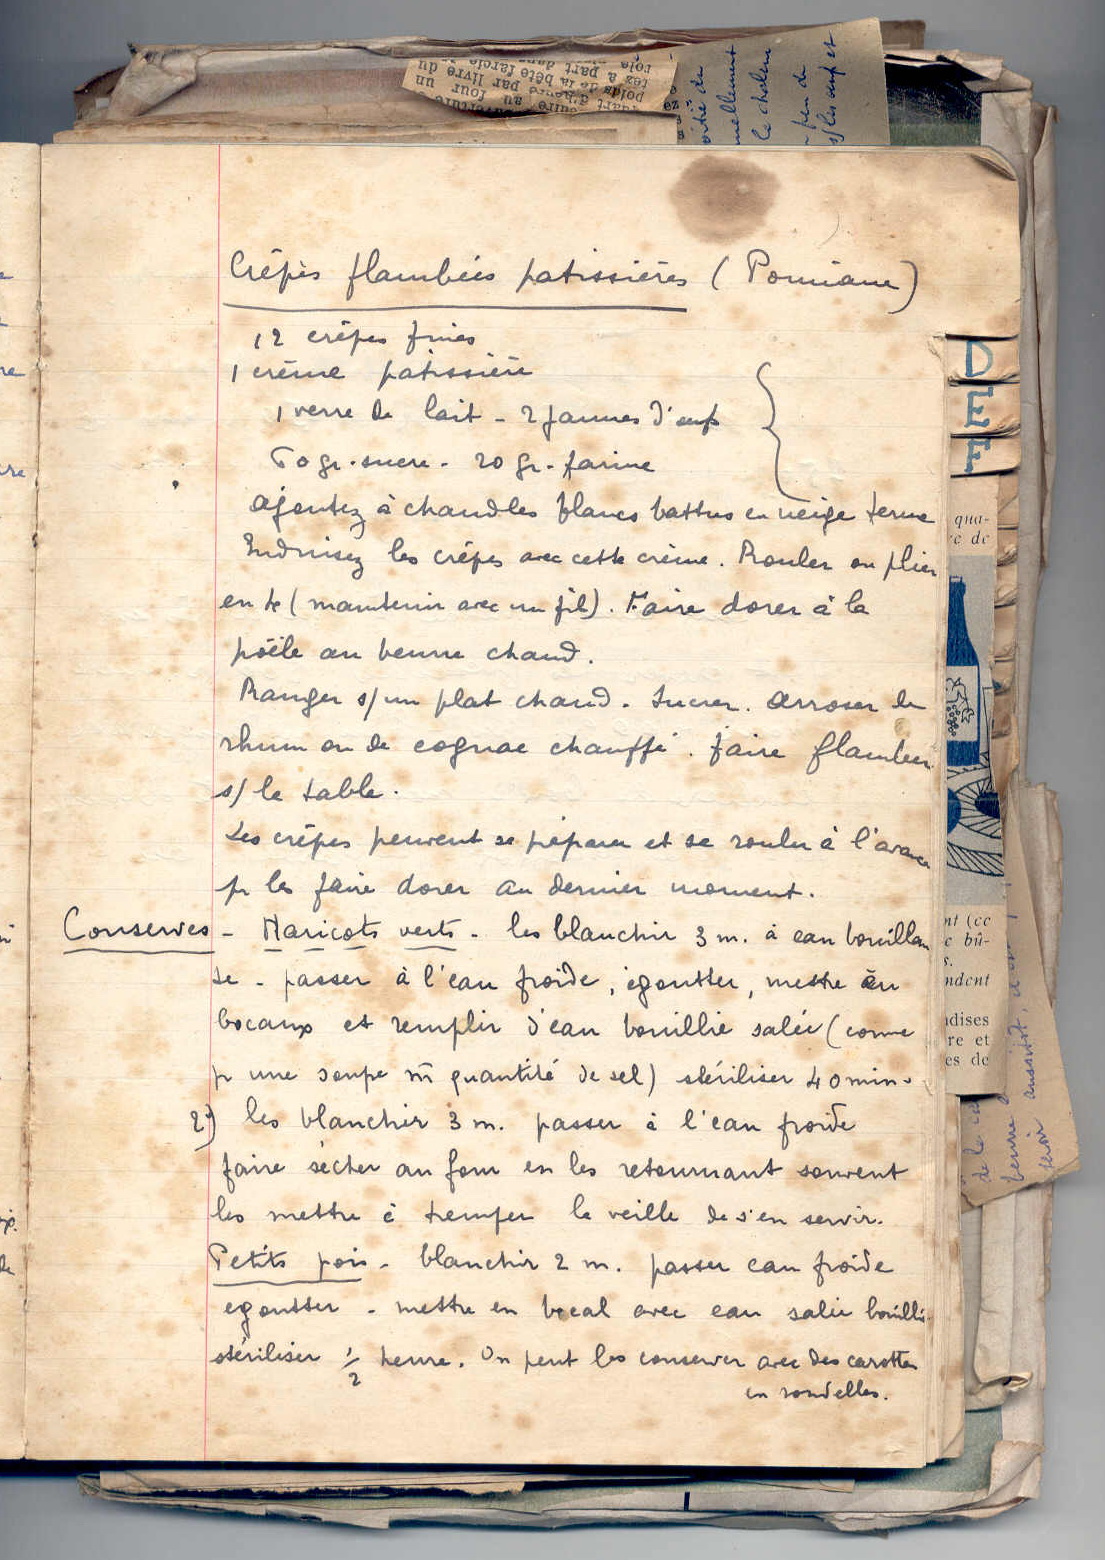 Crêpes flambées patissières (Pomiane)
12 crêpes fines
1 crème patissière
1 verre de lait - 2 jaunes d'œufs
50 gr. sucre - 20 gr. farine
ajoutez à chaud les blancs battus en neige ferme
Enduisez les crêpes avec cette crème. Rouler ou plier
en 4 (maintenir avec un fil). Faire dorer à la
poêle au beurre chaud.
Ranger s/ un plat chaud. Sucrer. Arroser de
rhum ou de cognac chauffé. faire flamber
s/ la table.
Les crêpes peuvent se préparer et se rouler à l'avance
pr les faire dorer au dernier moment.
Conserves - Haricots verts - les blanchir 3 m. à eau bouillan
te - passer à l'eau froide, égoutter, mettre en
bocaux et remplir d'eau bouillie salée (comme
pr une soupe m̄ quantité de sel) stériliser 40 min.
2°) les blanchir 3 m. passer à l'eau froide
faire sécher au four en les retournant souvent
les mettre à tremper la veille de s'en servir.
Petits pois - blanchir 2 m. passer eau froide
egoutter - mettre en bocal avec eau salée bouillie
stériliser 1/2 heure. On peut les conserver avec des carottes
en rondelles.
D
E
F
qua-
re de
nt (ce
c bû-
s.
ndent
ndises
re et
es de